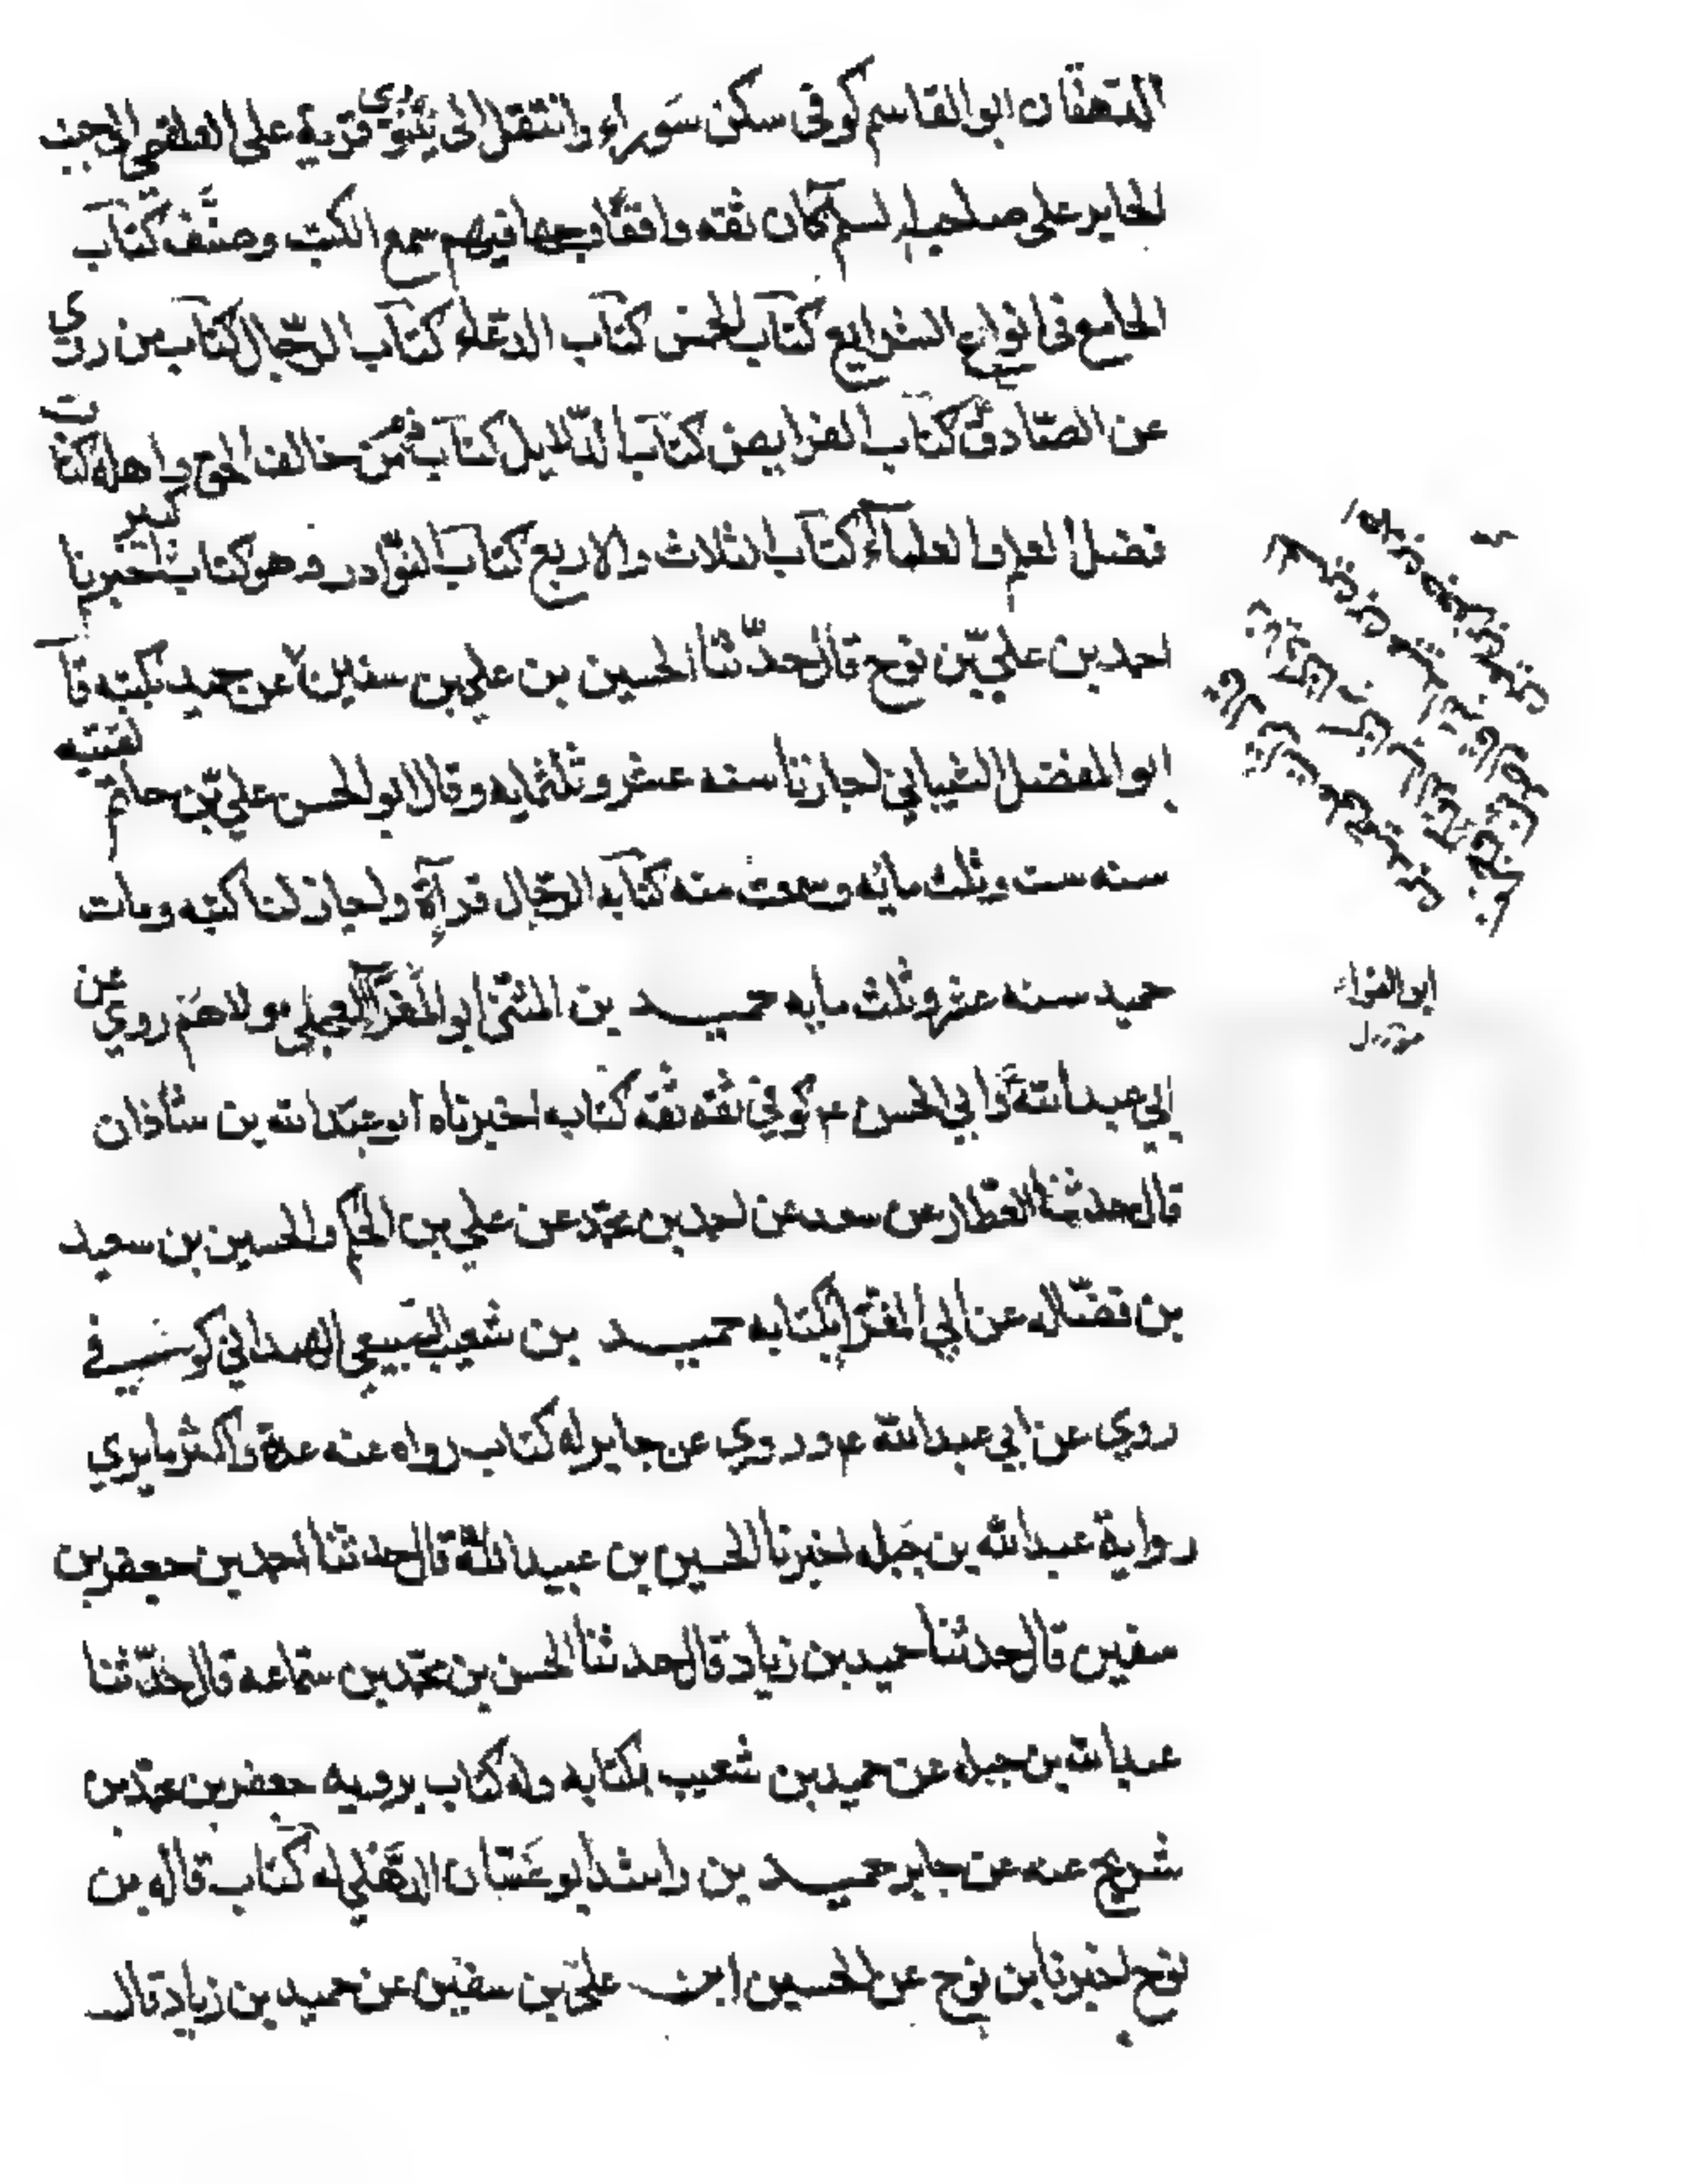 الدهقان ابو القاسم كوفي سكن سوراء وانتقل الى نينوى قرية على العلقمي الى جنب
الحاير على صاحبه السلم كان ثقه واقفا وجها فيهم سمع الكتب وصنف كتاب
الجامع في انواع الشرايع كتاب الخمس كتاب الدعاء كتاب الرجال كتاب من روي
عن الصادق كتاب الفرايض كتاب الدليل كتاب ذم من خالف الحق واهله كتاب
فضل العلم والعلماء كتاب الثلاث والاربع كتاب النوادر وهو كتاب كبير اخبرنا
احمد بن علي بن نوح قال حدثنا الحسين بن علي بن سفين عن حميد بكتبه قال
ابو المفضل الشيباني اجازنا سنه عشر وثلثمايه وقال ابو الحسن علي بن حاتم لقيته
سنه ست وثلث مايه وسمعت منه كتابه الرجال قرآءة واجاز لنا كتبه ومات
حميد سنه عشر وثلث مايه حميد بن المثنى ابو المغرآ العجلي مولاهم روي عن
ابي عبد الله وابي الحسن ع كوفي ثقه ثقه كتاب اخبرناه ابو عبد الله بن شاذان
قال حدثنا العطار عن سعد عن احمد بن محمد عن علي بن الحكم والحسين بن سعيد
بن فضال عن ابي المغرا بكتابه حميد بن شعيب السبيعي الهمداني كوفي
روي عن ابي عبد الله ع وروي عن جابر له كتاب رواه عنه عدة واكثر ما يري
رواية عبد الله بن جبله اخبرنا الحسين بن عبيد الله قال حدثنا احمد بن جعفر بن
سفين قال حدثنا حميد بن زياد قال حدثنا الحسن بن محمد بن سماعه قال حدثنا
عبد الله بن جبله عن حميد بن شعيب بكتابه وله كتاب يرويه جعفر بن محمد بن
شريح عنه عن جابر حميد بن راشد ابو غسان الذهلي له كتاب قاله بن
نوح اخبرنا بن نوح عن الحسين ابن علي بن سفين عن حميد بن زياد قال
ابو الغراء